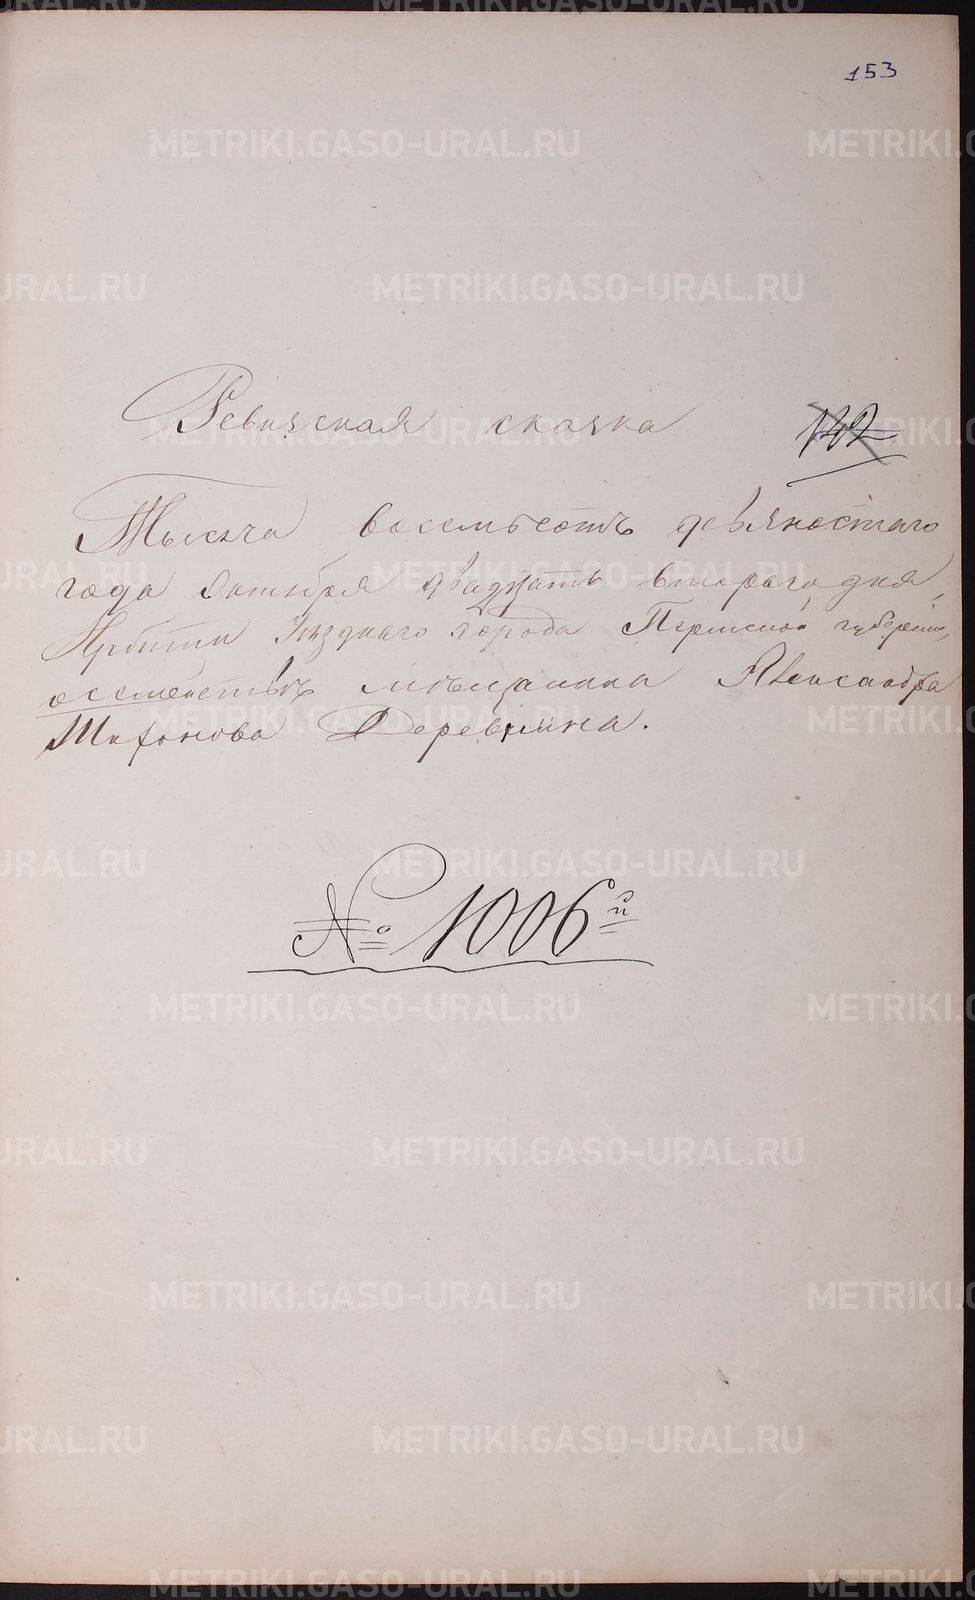 153
Ревизская сказка
142
Тысяча восемьсотъ девяностаго
года Октября двадцать втораго дня,
Ирбити Уѣзднаго города Пермской губерніи,
о семействѣ мѣщанина Александра
Деревнина.
№ 1006й
METRIKI.GASO-URAL.RU